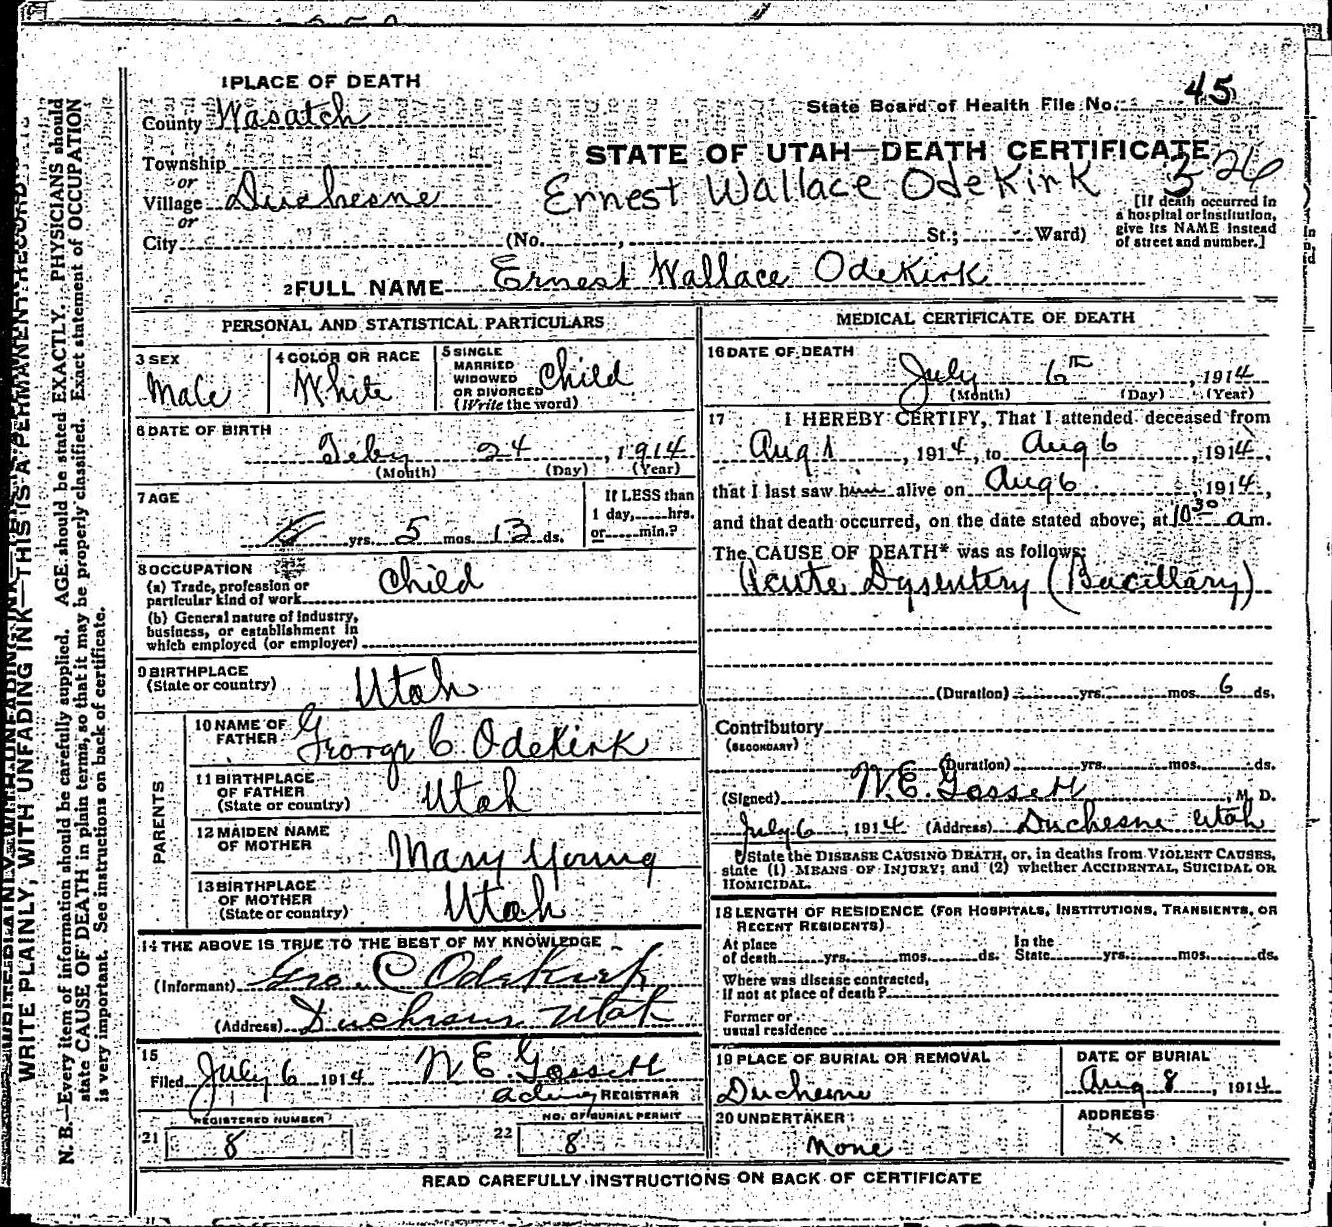 1 PLACE OF DEATH
State Board of Health File No. 45
County Wasatch
STATE OF UTAH—DEATH CERTIFICATE
326
Township
or
Village Duchesne
Ernest Wallace Odekirk
or
City (No. , St.; Ward)
[If death occurred in
a hospital or institution,
give its NAME instead
of street and number.]
2 FULL NAME Ernest Wallace Odekirk
PERSONAL AND STATISTICAL PARTICULARS
3 SEX
Male
4 COLOR OR RACE
White
5 SINGLE
MARRIED
WIDOWED
OR DIVORCED
(Write the word)
Child
6 DATE OF BIRTH
Feby 24, 1914
(Month) (Day) (Year)
7 AGE
yrs. 5 mos. 13 ds.
If LESS than
1 day, hrs.
or min.?
8 OCCUPATION
(a) Trade, profession or
particular kind of work
Child
(b) General nature of industry,
business, or establishment in
which employed (or employer)
9 BIRTHPLACE
(State or country)
Utah
PARENTS
10 NAME OF
FATHER
George C Odekirk
11 BIRTHPLACE
OF FATHER
(State or country)
Utah
12 MAIDEN NAME
OF MOTHER
Mary Young
13 BIRTHPLACE
OF MOTHER
(State or country)
Utah
14 THE ABOVE IS TRUE TO THE BEST OF MY KNOWLEDGE
(Informant) Geo. C Odekirk
(Address) Duchesne Utah
15
Filed July 6 1914 W E. Gossett
acting REGISTRAR
REGISTERED NUMBER
21 8
NO. OF BURIAL PERMIT
22 8
MEDICAL CERTIFICATE OF DEATH
16 DATE OF DEATH
July 6th, 1914
(Month) (Day) (Year)
17 I HEREBY CERTIFY, That I attended deceased from
Aug 1, 1914, to Aug 6, 1914,
that I last saw him alive on Aug 6, 1914,
and that death occurred, on the date stated above, at 10 30 a m.
The CAUSE OF DEATH* was as follows:
Acute Dysentery (Bacillary)
(Duration) yrs. mos. 6 ds.
Contributory
(SECONDARY)
(Duration) yrs. mos. ds.
(Signed) W. E. Gossett, M. D.
July 6, 1914 (Address) Duchesne Utah
*State the DISEASE CAUSING DEATH, or, in deaths from VIOLENT CAUSES,
state (1) MEANS OF INJURY; and (2) whether ACCIDENTAL, SUICIDAL OR
HOMICIDAL.
18 LENGTH OF RESIDENCE (FOR HOSPITALS, INSTITUTIONS, TRANSIENTS, OR
RECENT RESIDENTS)
At place
of death yrs. mos. ds.
In the
State yrs. mos. ds.
Where was disease contracted,
if not at place of death?
Former or
usual residence
19 PLACE OF BURIAL OR REMOVAL
Duchesne
DATE OF BURIAL
Aug 8, 1914
20 UNDERTAKER
None
ADDRESS
x
READ CAREFULLY INSTRUCTIONS ON BACK OF CERTIFICATE
WRITE PLAINLY, WITH UNFADING INK—THIS IS A PERMANENT RECORD
N. B.—Every item of information should be carefully supplied. AGE should be stated EXACTLY. PHYSICIANS should
state CAUSE OF DEATH in plain terms, so that it may be properly classified. Exact statement of OCCUPATION
is very important. See instructions on back of certificate.